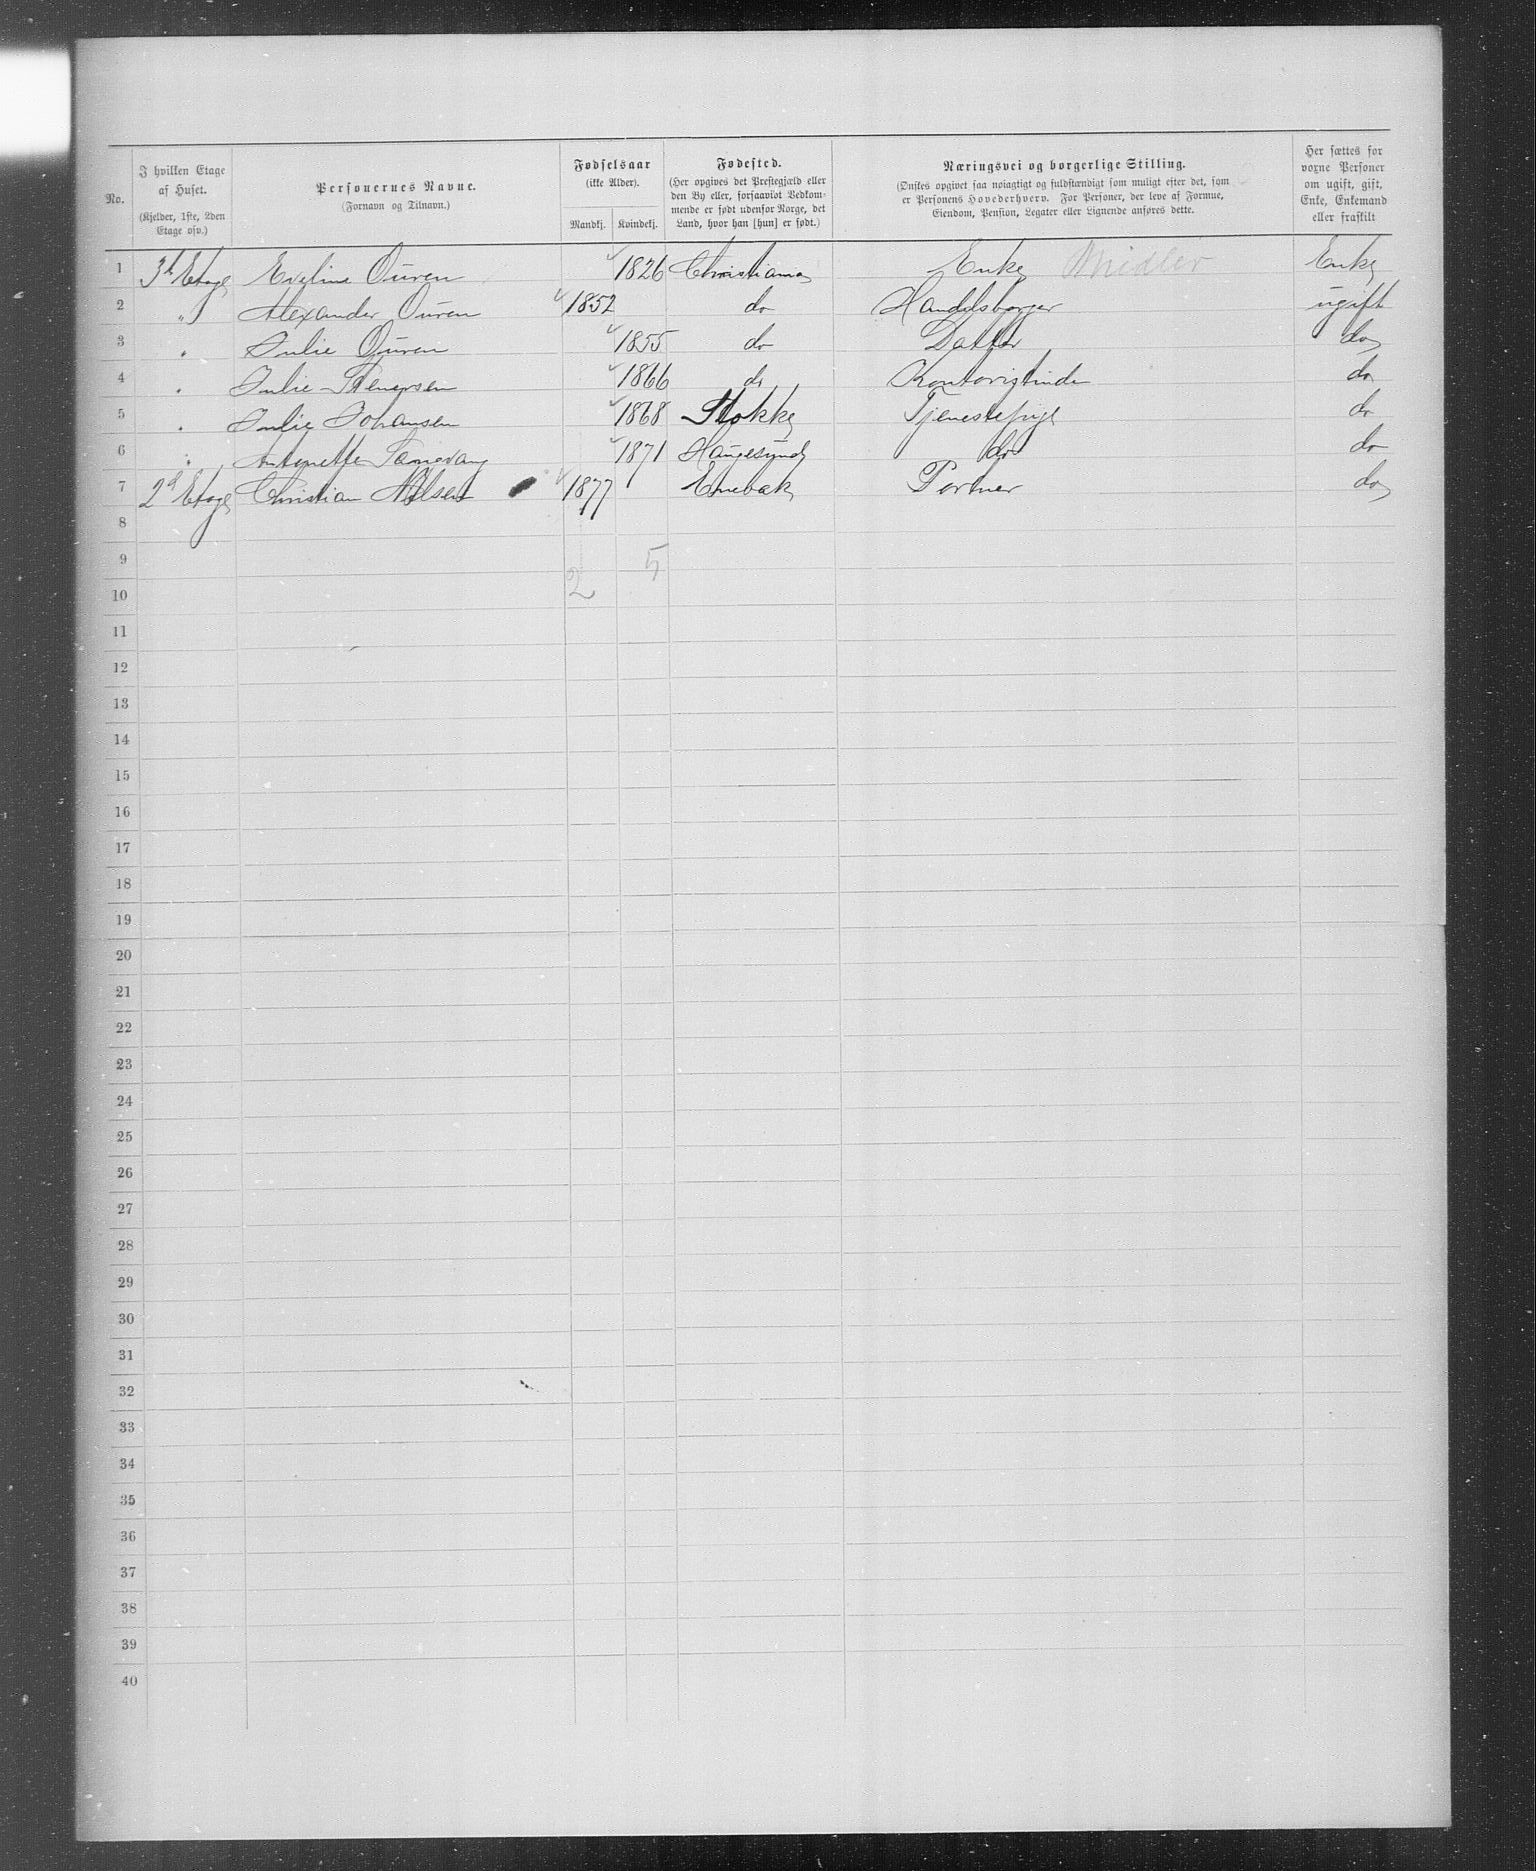 No.
I hvilken Etage af Huset.
(Kjelder, 1ste, 2den Etage osv.)
Personernes Navne.
(Fornavn og Tilnavn.)
Fødselsaar
(ikke Alder).
Mandkj. Kvindekj.
Fødested.
(Her opgives det Prestegjæld eller
den By eller, forsaavidt Vedkom-
mende er født udenfor Norge, det
Land, hvor han [hun] er født.)
Næringsvei og borgerlige Stilling.
(Ønskes opgivet saa nøiagtigt og fuldstændigt som muligt efter det, som
er Personens Hovederhverv. For Personer, der leve af Formue,
Eiendom, Pension, Legater eller Lignende anføres dette.
Her sættes for
voxne Personer
om ugift, gift,
Enke, Enkemand
eller fraskilt
1 3die Etage Eveline Ouren 1826 Christiania Enke Midler Enke
2 " Alexander Ouren 1852 do Handelsborger ugift
3 " Julie Ouren 1855 do Datter do
4 " Julie Stenersen 1866 do Kontoristinde do
5 " Julie Johansen 1868 Stokke Tjenestepige do
6 " Antonette 1871 Haugesund do do
7 2d Etage Christian Nilsen 1877 Enebak Portner do
8
9 5
10 2
11
12
13
14
15
16
17
18
19
20
21
22
23
24
25
26
27
28
29
30
31
32
33
34
35
36
37
38
39
40